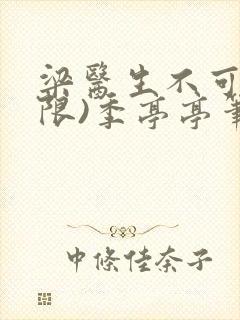 梁醫生不可
限)季亭亭筆
中條佳奈子